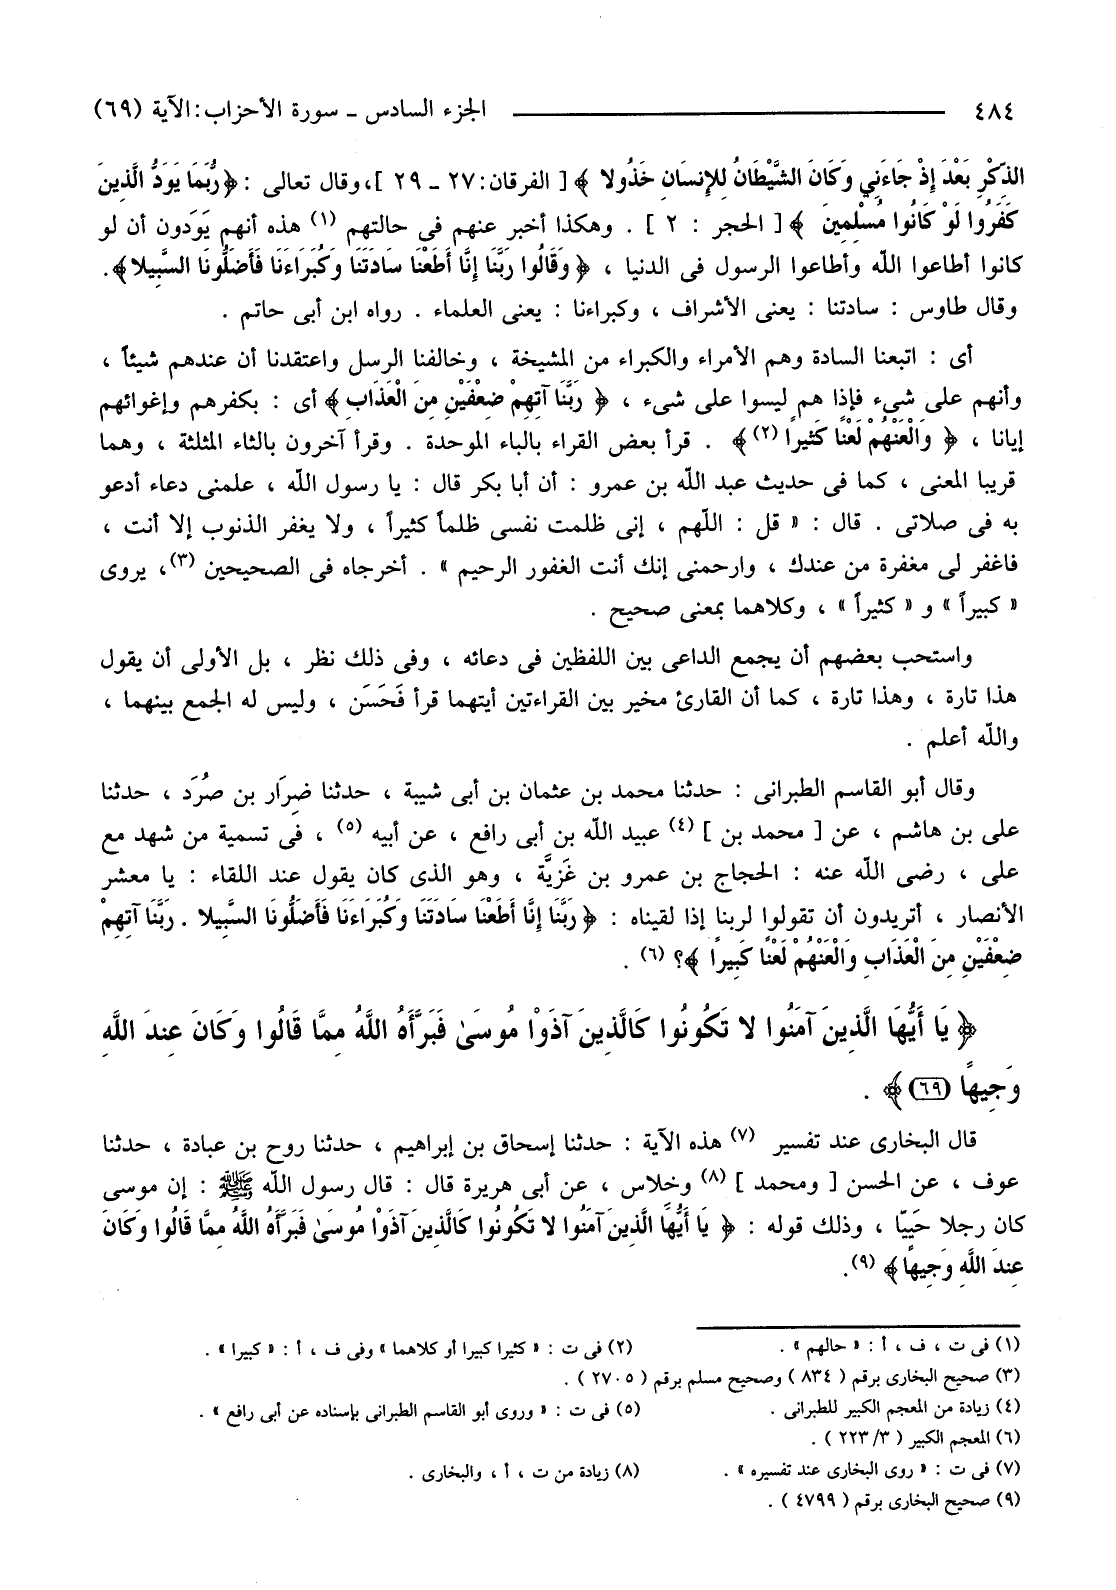 ٤٨٤ ــــــــــ الجزء السادس ـ سورة الأحزاب : الآية (٦٩)
الذِّكْرِ بَعْدَ إِذْ جَاءَنِي وَكَانَ الشَّيْطَانُ لِلإِنسَانِ خَذُولا ﴾ [ الفرقان: ٢٧ ـ ٢٩ ]، وقال تعالى : ﴿ رُّبَمَا يَوَدُّ الَّذِينَ
كَفَرُوا لَوْ كَانُوا مُسْلِمِينَ ﴾ [ الحجر : ٢ ] . وهكذا أخبر عنهم فى حالتهم (١) هذه أنهم يَوَدون أن لو
كانوا أطاعوا الله وأطاعوا الرسول فى الدنيا ، ﴿ وَقَالُوا رَبَّنَا إِنَّا أَطَعْنَا سَادَتَنَا وَكُبَرَاءَنَا فَأَضَلُّونَا السَّبِيلا﴾.
وقال طاوس : سادتنا : يعنى الأشراف ، وكبراءنا : يعنى العلماء . رواه ابن أبى حاتم .
أى : اتبعنا السادة وهم الأمراء والكبراء من المشيخة ، وخالفنا الرسل واعتقدنا أن عندهم شيئاً ،
وأنهم على شىء فإذا هم ليسوا على شىء ، ﴿ رَبَّنَا آتِهِمْ ضِعْفَيْنِ مِنَ الْعَذَابِ ﴾ أى : بكفرهم وإغوائهم
إيانا ، ﴿ وَالْعَنْهُمْ لَعْنًا كَثِيرًا (٢) ﴾ . قرأ بعض القراء بالباء الموحدة . وقرأ آخرون بالثاء المثلثة ، وهما
قريبا المعنى ، كما فى حديث عبد الله بن عمرو : أن أبا بكر قال : يا رسول الله ، علمنى دعاء أدعو
به فى صلاتى . قال : « قل : اللهم ، إنى ظلمت نفسى ظلماً كثيراً ، ولا يغفر الذنوب إلا أنت ،
فاغفر لى مغفرة من عندك ، وارحمنى إنك أنت الغفور الرحيم » . أخرجاه فى الصحيحين (٣)، يروى
« كبيراً » و « كثيراً » ، وكلاهما بمعنى صحيح .
واستحب بعضهم أن يجمع الداعى بين اللفظين فى دعائه ، وفى ذلك نظر ، بل الأولى أن يقول
هذا تارة ، وهذا تارة ، كما أن القارئ مخير بين القراءتين أيتهما قرأ فَحَسَن ، وليس له الجمع بينهما ،
والله أعلم .
وقال أبو القاسم الطبرانى : حدثنا محمد بن عثمان بن أبى شيبة ، حدثنا ضِرَار بن صُرَد ، حدثنا
على بن هاشم ، عن [ محمد بن ] (٤) عبيد الله بن أبى رافع ، عن أبيه (٥) ، فى تسمية من شهد مع
على ، رضى الله عنه : الحجاج بن عمرو بن غَزِيَّة ، وهو الذى كان يقول عند اللقاء : يا معشر
الأنصار ، أتريدون أن تقولوا لربنا إذا لقيناه : ﴿ رَبَّنَا إِنَّا أَطَعْنَا سَادَتَنَا وَكُبَرَاءَنَا فَأَضَلُّونَا السَّبِيلا . رَبَّنَا آتِهِمْ
ضِعْفَيْنِ مِنَ الْعَذَابِ وَالْعَنْهُمْ لَعْنًا كَبِيرًا ﴾؟ (٦) .
﴿ يَا أَيُّهَا الَّذِينَ آمَنُوا لا تَكُونُوا كَالَّذِينَ آذَوْا مُوسَىٰ فَبَرَّأَهُ اللَّهُ مِمَّا قَالُوا وَكَانَ عِندَ اللَّهِ
وَجِيهًا (٦٩) ﴾ .
قال البخارى عند تفسير (٧) هذه الآية : حدثنا إسحاق بن إبراهيم ، حدثنا روح بن عبادة ، حدثنا
عوف ، عن الحسن [ ومحمد ] (٨) وخلاس ، عن أبى هريرة قال : قال رسول الله ﷺ : إن موسى
كان رجلا حَيِيّا ، وذلك قوله : ﴿ يَا أَيُّهَا الَّذِينَ آمَنُوا لا تَكُونُوا كَالَّذِينَ آذَوْا مُوسَىٰ فَبَرَّأَهُ اللَّهُ مِمَّا قَالُوا وَكَانَ
عِندَ اللَّهِ وَجِيهًا ﴾ (٩).
(١) فى ت ، ف ، أ : « حالهم » . (٢) فى ت : « كثيرا كبيرا أو كلاهما » وفى ف ، أ : « كبيرا » .
(٣) صحيح البخارى برقم ( ٨٣٤ ) وصحيح مسلم برقم ( ٢٧٠٥ ) .
(٤) زيادة من المعجم الكبير للطبرانى . (٥) فى ت : « وروى أبو القاسم الطبرانى بإسناده عن أبى رافع » .
(٦) المعجم الكبير ( ٣/ ٢٢٣ ) .
(٧) فى ت : « روى البخارى عند تفسيره » . (٨) زيادة من ت ، أ ، والبخارى .
(٩) صحيح البخارى برقم ( ٤٧٩٩ ) .